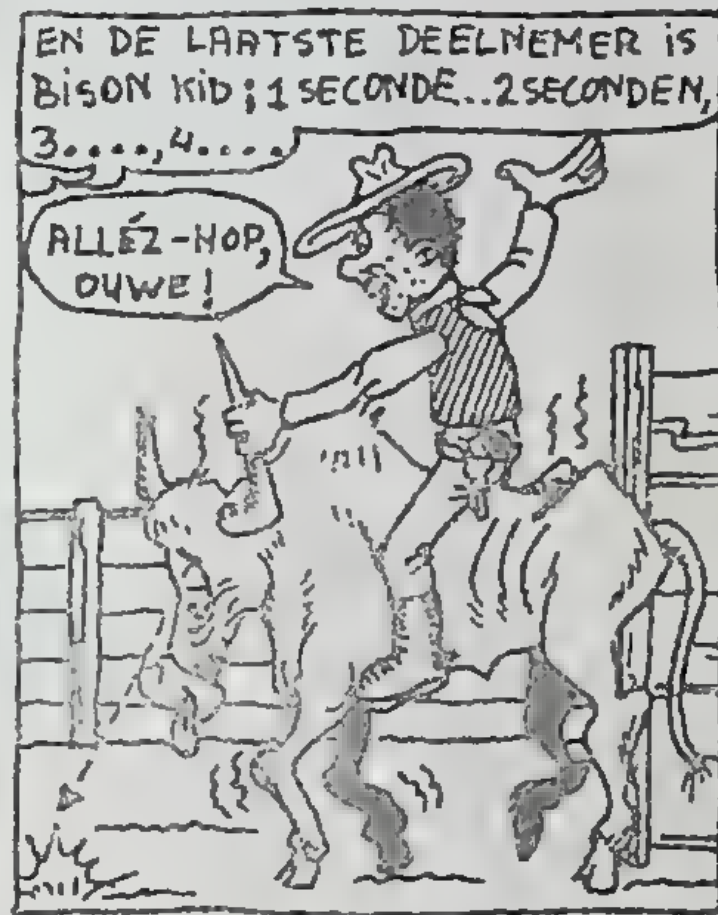 EN DE LAATSTE DEELNEMER is
BiSON KiD; 1 SECONDE..2 SECONDEN,
3....,4....
ALLÉZ-HOP,
OUWE!